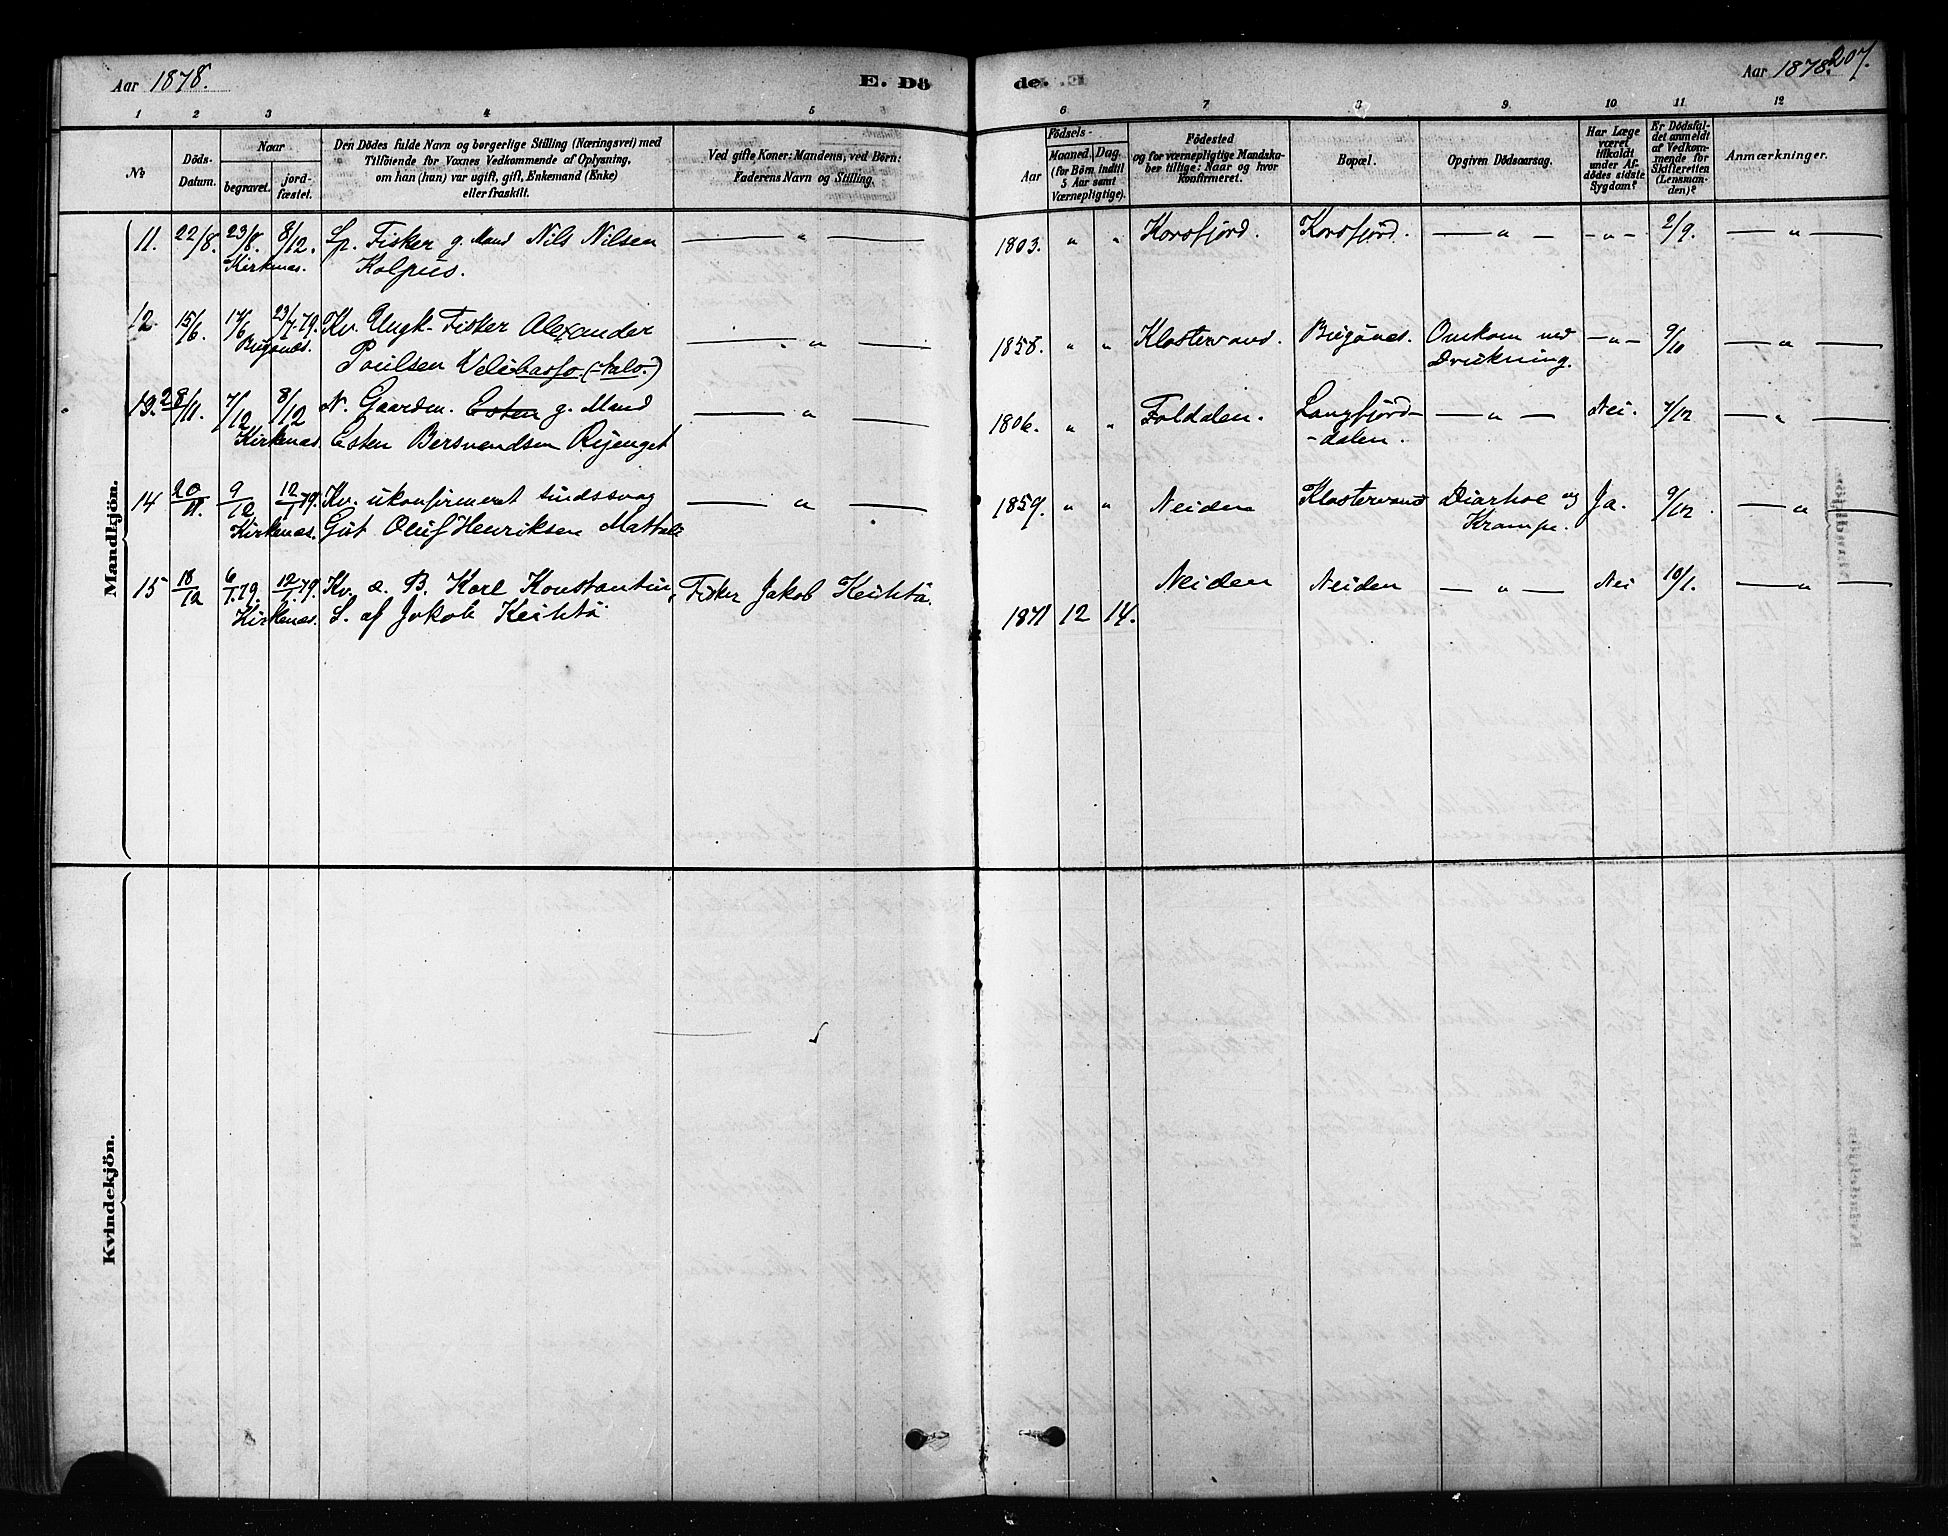 Aar 1878.
E. Dö
de.
Aar 1878.
207.
1 2 3 4 5 6 7 8 9 10 11 12
No
Döds-
Datum.
Naar
begravet.
jord-
fæstet.
Den Dödes fulde Navn og borgerlige Stilling (Næringsvei) med
Tilföiende for Voxnes Vedkommende af Oplysning,
om han (hun) var ugift, gift, Enkemand (Enke)
eller fraskilt.
Ved gifte Koner: Mandens, ved Börn:
Faderens Navn og Stilling.
Födsels-
Aar
Maaned. Dag.
(for Börn indtil
5 Aar samt
Værnepligtige).
Födested
og for værnepligtige Mandska-
ber tillige: Naar og hvor
konfirmeret.
Bopæl.
Opgiven Dödsaarsag.
Har Læge
været
tilkaldt
under Af-
dödes sidste
Sygdom?
Er Dödsfal-
det anmeldt
af Vedkom-
mende for
Skifteretten
(Lensman-
den)?
Anmærkninger.
Mandkjön.
11. 22/8. 23/8. 8/12. Lp. Fisker g. Mand Nils Nilsen — „ — 1803. „ „ Korsfjord. Korsfjörd. — „ — — „ — 2/9. — „ —
Kirkenæs. Kolpus.
12. 15/6. 17/6 23/7 79. Kv. Ungk. Fisker Alexander — „ — 1858. „ „ Klostervand. Bugönes. Omkom ved — „ — 9/10 — „ —
Bugönæs. Poulsen Velibasso (-talo-) Drukning.
13. 28/11. 7/12 8/12 N. Gaardm. Esten g. Mand — „ — 1806. „ „ Foldalen. Langfjörd- — „ — Nei. 7/12 — „ —
Kirkenæs. Esten Bersvendsen Ryenget -dalen.
14 20/11. 9/12 12/1 79. Kv. ukonfirmeret sindssvag — „ — 1859. „ „ Neiden Klostervand Diarhoe og Ja. 9/12 — „ —
Kirkenæs. Gut Oluf Henriksen Mattala Krampe.
15 18/12 6/1.79. 12/1.79. Kv. æ. B. Karl Konstantin, Fisker Jakob Keihtä. Neiden Neiden — „ — Nei 10/1. — „ —
Kirkenæs. S. af Jakob Keihtä 1871 12 14.
Kvindekjön.